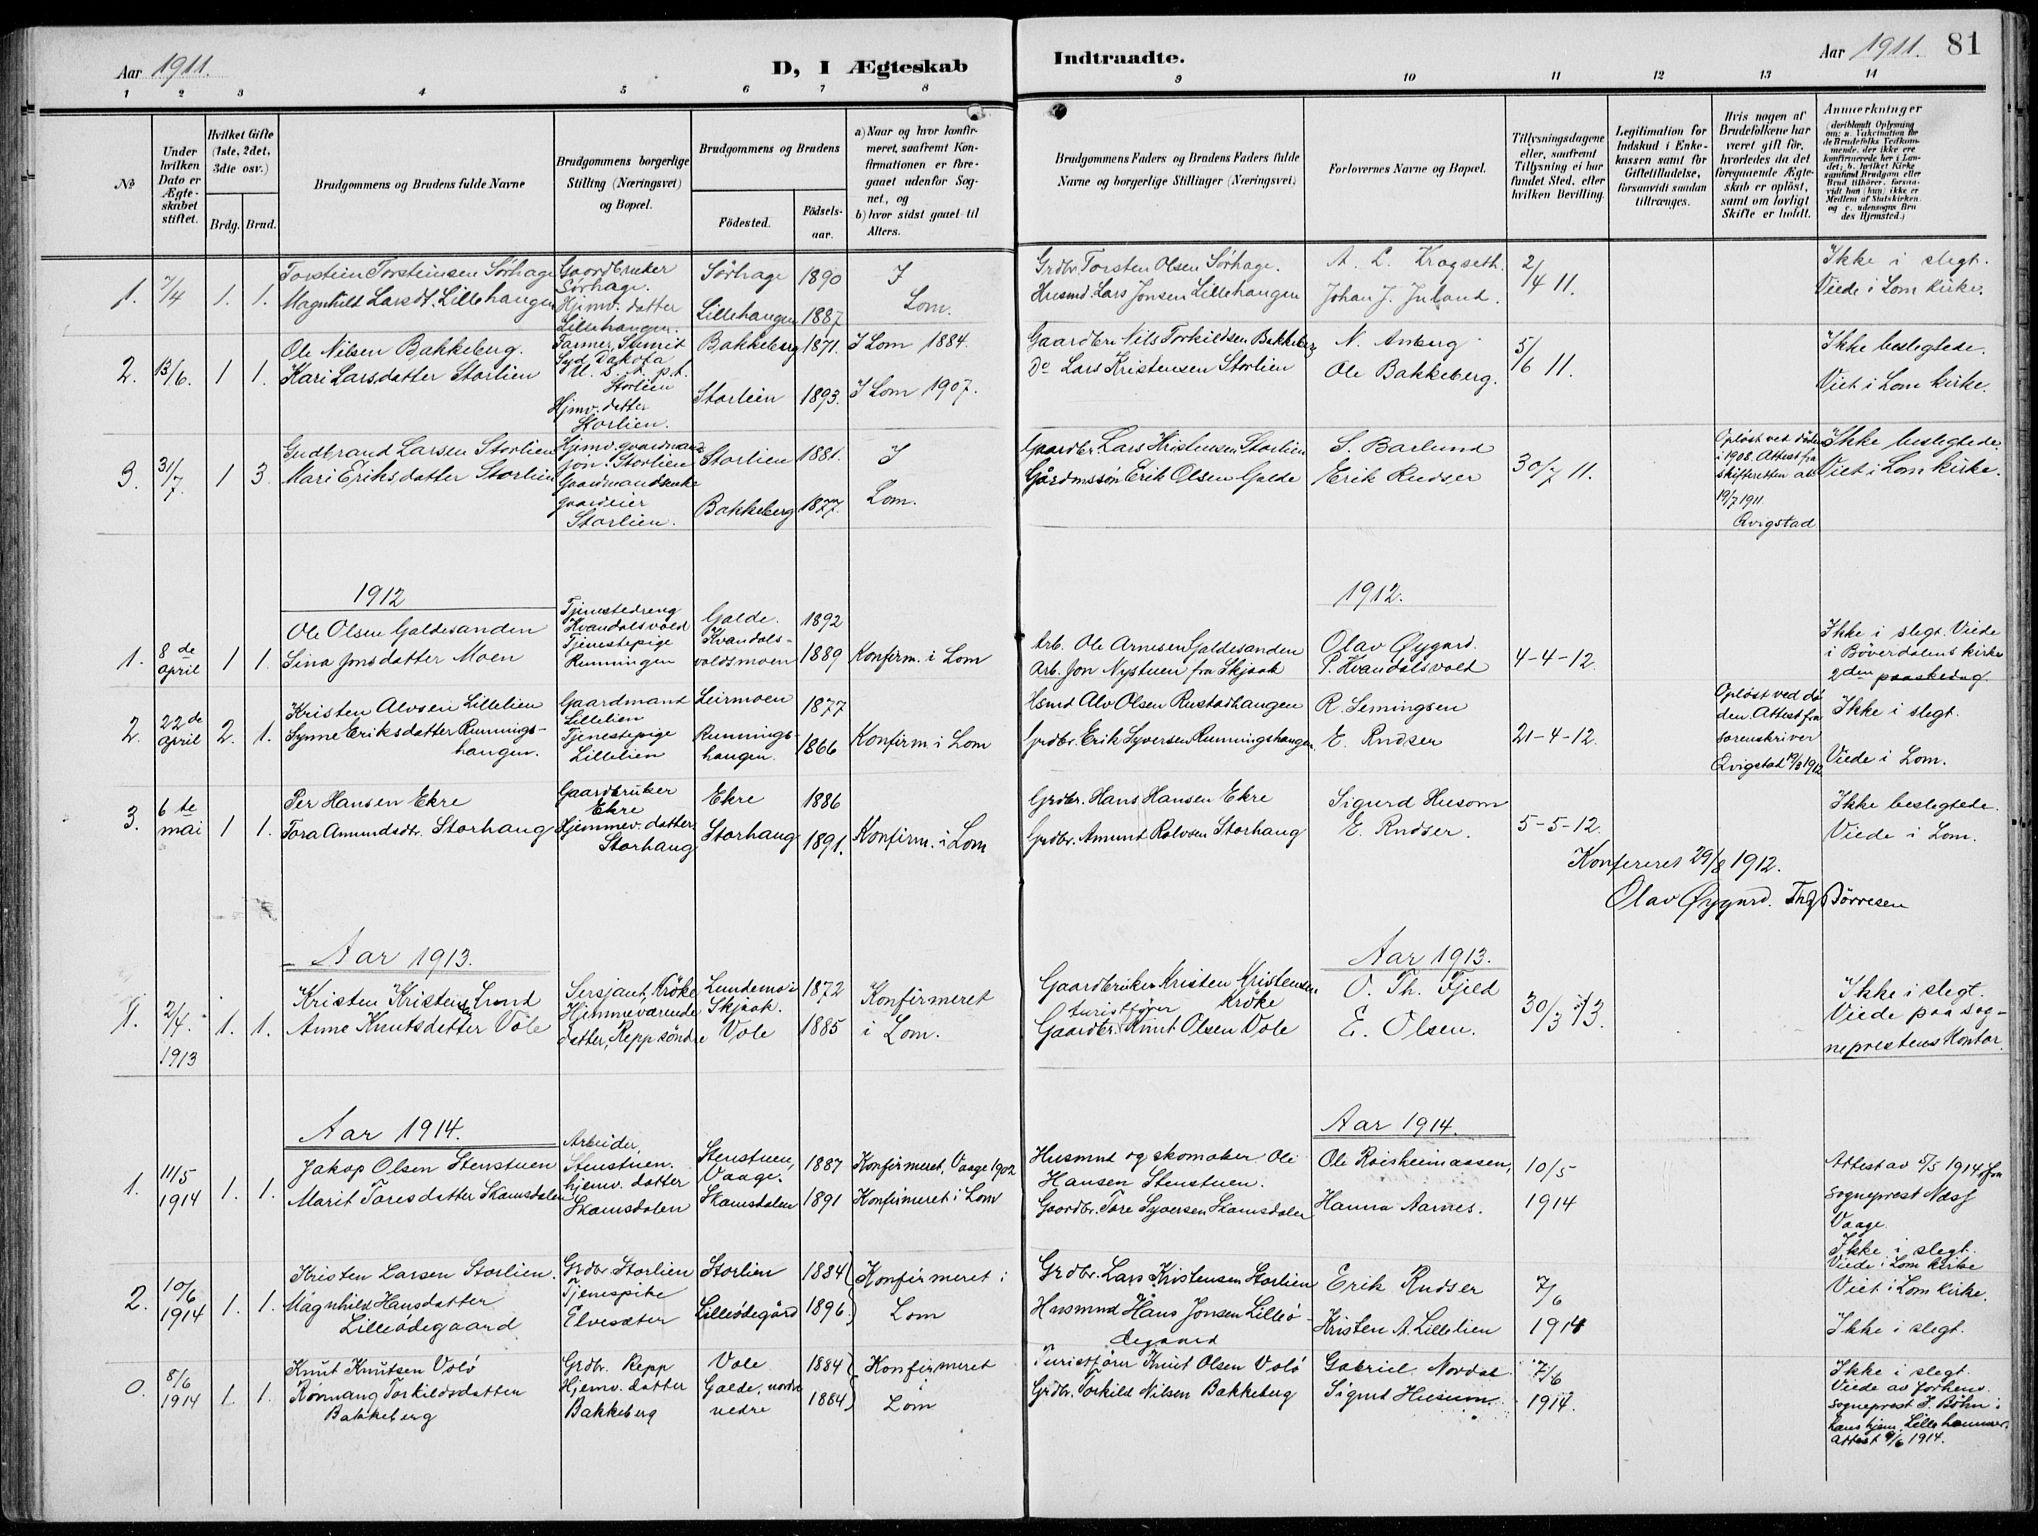 Aar 1911.
D, I Ægteskab
Indtraadte.
Aar 1911.
81
1 2 3 4 5 6 7 8 9 10 11 12 13 14
No
Under hvilken Dato er Ægteskabet stiftet.
Hvilket Gifte (1ste, 2det, 3die osv.)
Brdg. Brud.
Brudgommens og Brudens fulde Navne
Brudgommens borgerlige Stilling (Næringsvei) og Bopæl.
Brudgommens og Brudens
Födested.
Födsels-aar.
a) Naar og hvor konfirmeret, saafremt Konfirmationen er foregaaet udenfor Sognet, og
b) hvor sidst gaaet til Alters.
Brudgommens Faders og Brudens Faders fulde Navne og borgerlige Stillinger (Næringsvei)
Forlovernes Navne og Bopæl.
Tillysningsdagene eller, saafremt Tillysning ei har fundet Sted, efter hvilken Bevilling.
Legitimation for Indskud i Enkekassen samt for Giftetilladelse, forsaavidt saadan tiltrænges.
Hvis nogen af Brudefolkene har været gift för, hvorledes da det foregaaende Ægteskab er oplöst, samt om lovligt Skifte er holdt.
Anmerkninger
(deriblandt Oplysning om: a. Vakcination for de Brudefolks Vedkommende, der ikke ere konfirmerede her i Landet, b. hvilket Kirkesamfund Brudgom eller Brud tilhörer, forsaavidt han (hun) ikke er Medlem af Statskirken, og c. udensogns Brudes Hjemsted.)
1. 7/4 1. 1.
Torstein Torsteinsen Sörhage
Magnhild Larsdt. Lillehaugen
Gaardbruker
Sörhage.
Hjemv. datter
Lillehaugen.
Sörhage 1890
Lillehaugen 1887
I
Lom.
Grdbr. Torsten Olsen Sörhage.
Husmd. Lars Jonsen Lillehaugen
A. L. Kragseth.
Johan J. Juland.
2/4 11.
Ikke i slegt.
Viede i Lom kirke.
2. 13/6. 1 1.
Ole Nilsen Bakkeberg.
Kari Larsdatter Storlien
Farmer,
Syd Dakota
U. S. A. p.t.
Storlien
Hjmv. datter
Storlien.
Bakkeberg 1871.
Storlien 1893.
I Lom 1884.
I Lom 1907.
Gaardbr. Nils Torkildsen Bakkeberg
Do Lars Kristensen Storlien
N. Amberg
Ole Bakkeberg.
5/6 11.
Ikke beslegtede.
Viet i Lom kirke.
3. 31/7 1 3.
Gudbrand Larsen Storlien
Mari Eriksdatter Storlien
Hjmv. gaardmands
søn. Storlien
Gaardmandsenke
gaardeier
Storlien.
Storlien 1881.
Bakkeberg 1877.
I
Lom.
Gaardbr. Lars Kristensen Storlien
Gårdmssön Erik Olsen Galde
S. Barlund
Erik Rudser
30/7 11.
Oplöst ved döden
i 1908. Attest fra
Skifteretten av
19/7 1911
Qvigstad
Ikke beslegtede.
Viet i Lom kirke.
1912
1912.
1. 8de april 1 1.
Ole Olsen Galdesanden
Sina Jonsdatter Moen
Tjenestedreng
Kvandalsvold
Tjenestepige
Runningen
Galde. 1892
Kvandals-
voldsmoen 1889
Konfirm. i Lom
Arb. Ole Arnesen Galdesanden
Arb. Jon Nystuen fra Skjaak
Olav Øygard.
P. Kvandalsvold
4-4-12.
Ikke i slegt. Viede
i Böverdalens kirke
2den paaskedag
2. 22de april 2. 1.
Kristen Alvsen Lillelien
Synne Eriksdatter Runnings-
haugen.
Gaardmand
Lillelien
Tjenestepige
Lillelien
Leirmoen 1877
Runnings-
haugen. 1866
Konfirm. i Lom
Hsmd Alv Olsen Rustadhaugen
Grdbr. Erik Syversen Runningshaugen
R. Semingsen
E. Rudser
21-4-12.
Oplöst ved dö-
den. Attest fra
sorenskriver
Qvigstad 19/3 1912
Ikke i slegt.
Viede i Lom.
3. 6te mai 1 1.
Per Hansen Ekre
Tora Amundsdtr. Storhaug
Gaardbruker
Ekre
Hjemmev. datter.
Storhaug
Ekre 1886
Storhaug 1891.
Konfirm. i Lom
Grdbr. Hans Hansen Ekre
Grdbr. Amund Rolvsen Storhaug
Sigurd Husom
E. Rudser.
5-5-12.
Ikke beslegtede.
Viede i Lom.
Konfereret 29/8 1912.
Olav Øygard. Børresen
Aar 1913.
Aar 1913.
1. 2/4. 1913 1. 1.
Kristen Kristensen Lund
Anne Knutsdatter Vole
Sersjant, Kröke
Hjemmeværende
datter, Repp söndre
Skjaak. 1872
Vole 1885
Konfirmeret
i Lom.
Gaardbruker Kristen Kristensen
turistfører Kröke
Gaardbr. Knut Olsen Vole
O. Th. Fjeld
E. Olsen.
30/3 13.
Ikke i slegt.
Viede paa sog-
neprestens kontor.
Aar 1914.
Aar 1914.
1. 11/5 1914 1. 1.
Jakop Olsen Stenstuen
Marit Toresdatter Skamsdalen
Arbeider,
Stenstuen.
hjemv. datter
Skamsdalen
Stenstuen,
Vaage. 1887
Skamsdalen 1891
Konfirmeret, Vaage 1902
Konfirmeret i Lom
Husmnd og skomaker Ole
Hansen Stenstuen.
Gaardbr. Tore Syversen Skamsdalen
Ole Roisheimaasen,
Hanna Aarnes.
10/5
1914
Attest av 5/5 1914 fra
sogneprest Næss
Vaage.
Ikke i slegt.
Viede i Lom kirke
2. 10/6 1914 1. 1.
Kristen Larsen Storlien.
Magnhild Hansdatter
Lilleødegaard
Grdbr. Storlien
Tjenepike
Elvesæter
Storlien 1884
Lilleødegård 1896
Konfirmeret i
Lom
Grdbr. Lars Kristensen Storlien
Husmnd Hans Jonsen Lilleø-
degaard
Erik Rudser
Kristen A. Lillelien
7/6
1914
Viet i Lom kirke.
Ikke i slegt.
0. 8/6 1914 1. 1.
Knut Knutsen Volö
Rønnaug Torkildsdatter
Bakkeberg
Grdbr. Repp
Hjemv. datter
Bakkeberg
Vole 1884
Galde, nordre
nedre 1884
Konfirmeret
i
Lom
Turistfører Knut Olsen Volö
Grdbr. Torkild Nilsen Bakkeberg
Gabriel Nordal
Sigurd Husum
7/6
1914.
Ikke i slegt.
Viede av forhenv.
sogneprest J. Bøhn i
hans hjem, Lillehammer,
Attest 9/6 1914.